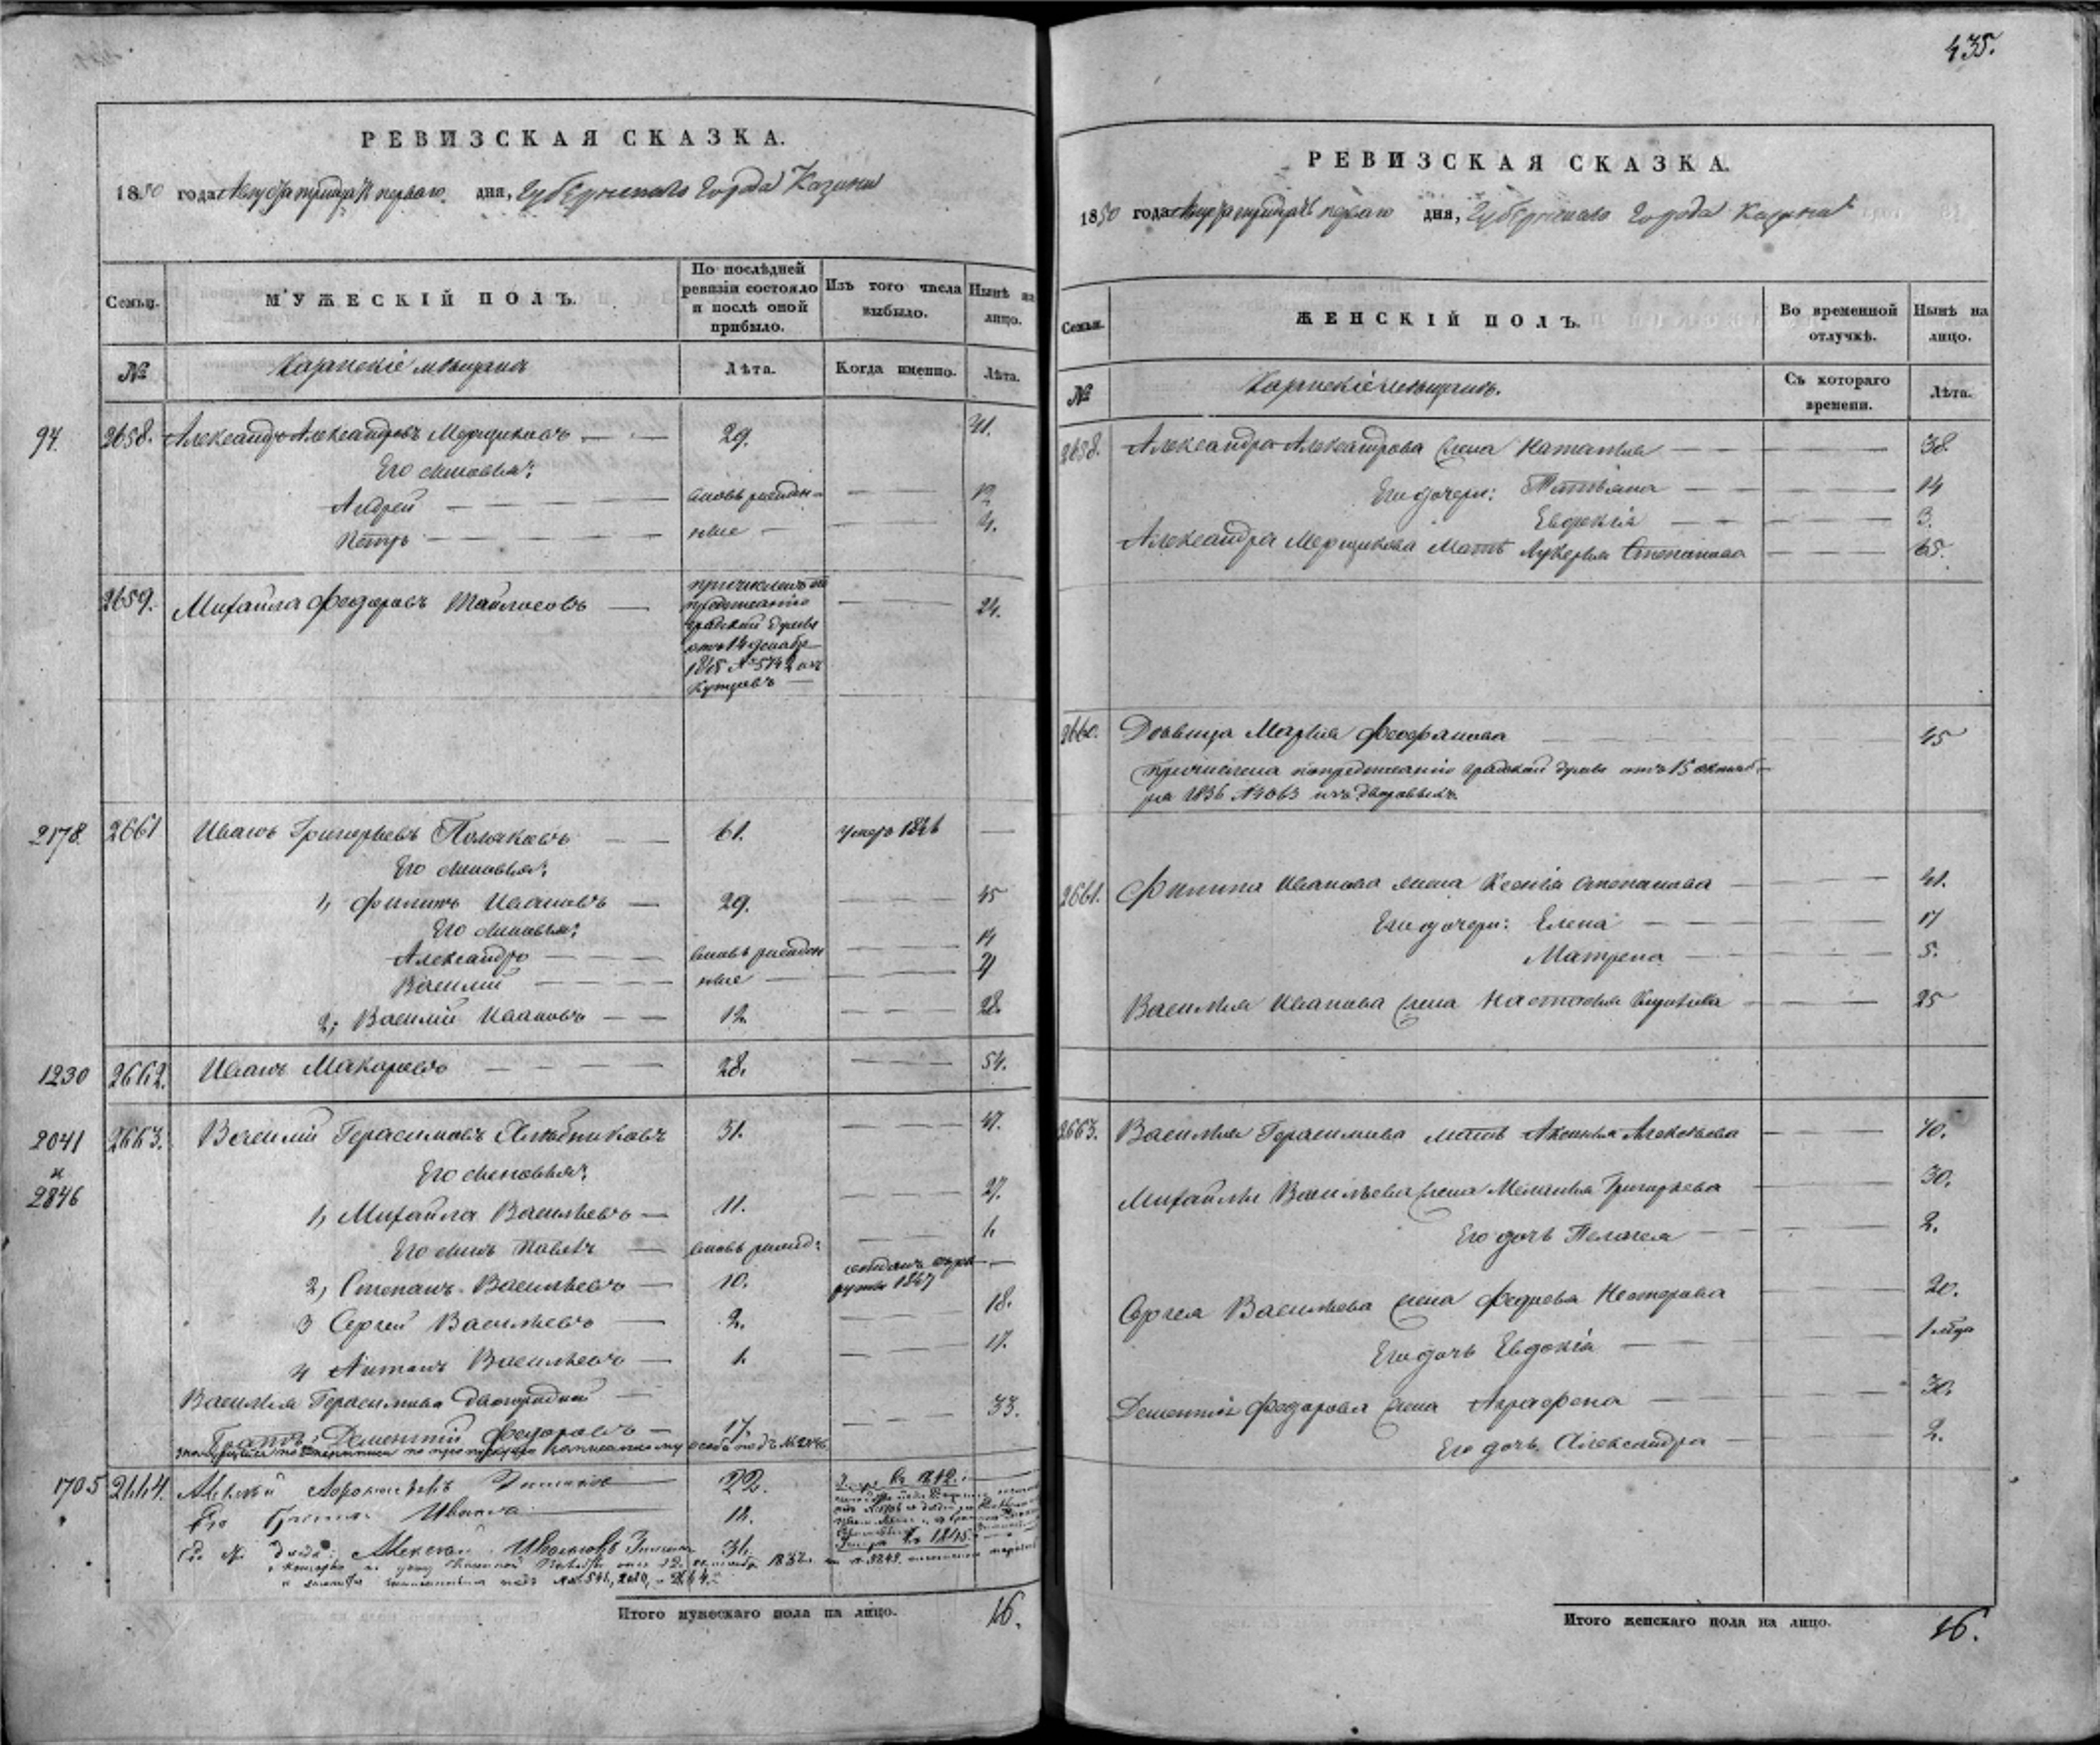 РЕВИЗСКАЯ СКАЗКА.
1850 года Августа тридцать перваго дня, Губернскаго Города Казани
Семьи.
МУЖЕСКІЙ ПОЛЪ.
По послѣдней ревизіи состояло и послѣ оной прибыло.
Изъ того числа выбыло.
Нынѣ на лицо.
№
Казанскіе мѣщане
Лѣта.
Когда именно.
Лѣта.
94. 2658. Александръ Александровъ 29. 41.
Его сыновья:
Андрей вновь рожден- 12
Петръ ные 4.
2659. Михайла Федоровъ 24.
причисленъ по
предписанію
градской думы
отъ 14 декабр
1845 № 5742 изъ
купцовъ
2178. 2661 Иванъ Григорьевъ Поляковъ 61. умеръ 1846
Его сыновья:
1, Филипъ Ивановъ 29. 45
Его сыновья:
Александръ вновь рожден 14
Василий ные
2, Василий Ивановъ 12. 28.
1230 2662. Иванъ Макаровъ 28. 54.
2041 и 2846 2663. Василий Герасимовъ 31. 47.
Его сыновья:
1, Михайла Васильевъ 11. 27.
Его сынъ Павелъ вновь рожд: 1.
2, Степанъ Васильевъ 10. отданъ въ рек
руты 1847
3 Сергей Васильевъ 2. 18.
4 Антонъ Васильевъ 1. 17.
Василья Герасимова двоюродный
братъ Дементий Федоровъ 17. 33.
1705 2664. Алексѣй 22.
Его Ивана 18.
Алексѣй Ивановъ 31.
Итого мужескаго пола на лицо. 16.
435.
РЕВИЗСКАЯ СКАЗКА.
1850 года Августа тридцать перваго дня, Губернскаго Города Казани
Семьи.
ЖЕНСКІЙ ПОЛЪ.
Во временной отлучкѣ.
Нынѣ на лицо.
№
Казанскіе мѣщанки.
Съ котораго времени.
Лѣта.
2658. Александра Александрова жена Наталья 38.
Его дочери: Татьяна 14
Евдокія 3.
Александра мать Лукерья Степанова 65.
2660. Дѣвица Марья Феофанова 45
причислена по предписанію градской думы отъ 15 октяб-
ря 1836 № 4063 изъ дворовыхъ.
2661. Филипа Иванова жена Ксенія Степанова 41.
Его дочери: Елена 17
Матрена 5.
Василья Иванова жена Настасья 25
2663. Василья Герасимова мать Аксинья Алексѣева 70.
Михайлы Васильева жена Меланья Григорьева 30.
Его дочь Пелагея 2.
Сергея Васильева жена Федосья Нестерова 20.
Его дочь Евдокія 1 мѣся
Дементія Федорова жена Аграфена 30.
Его дочь Александра 2.
Итого женскаго пола на лицо. 16.